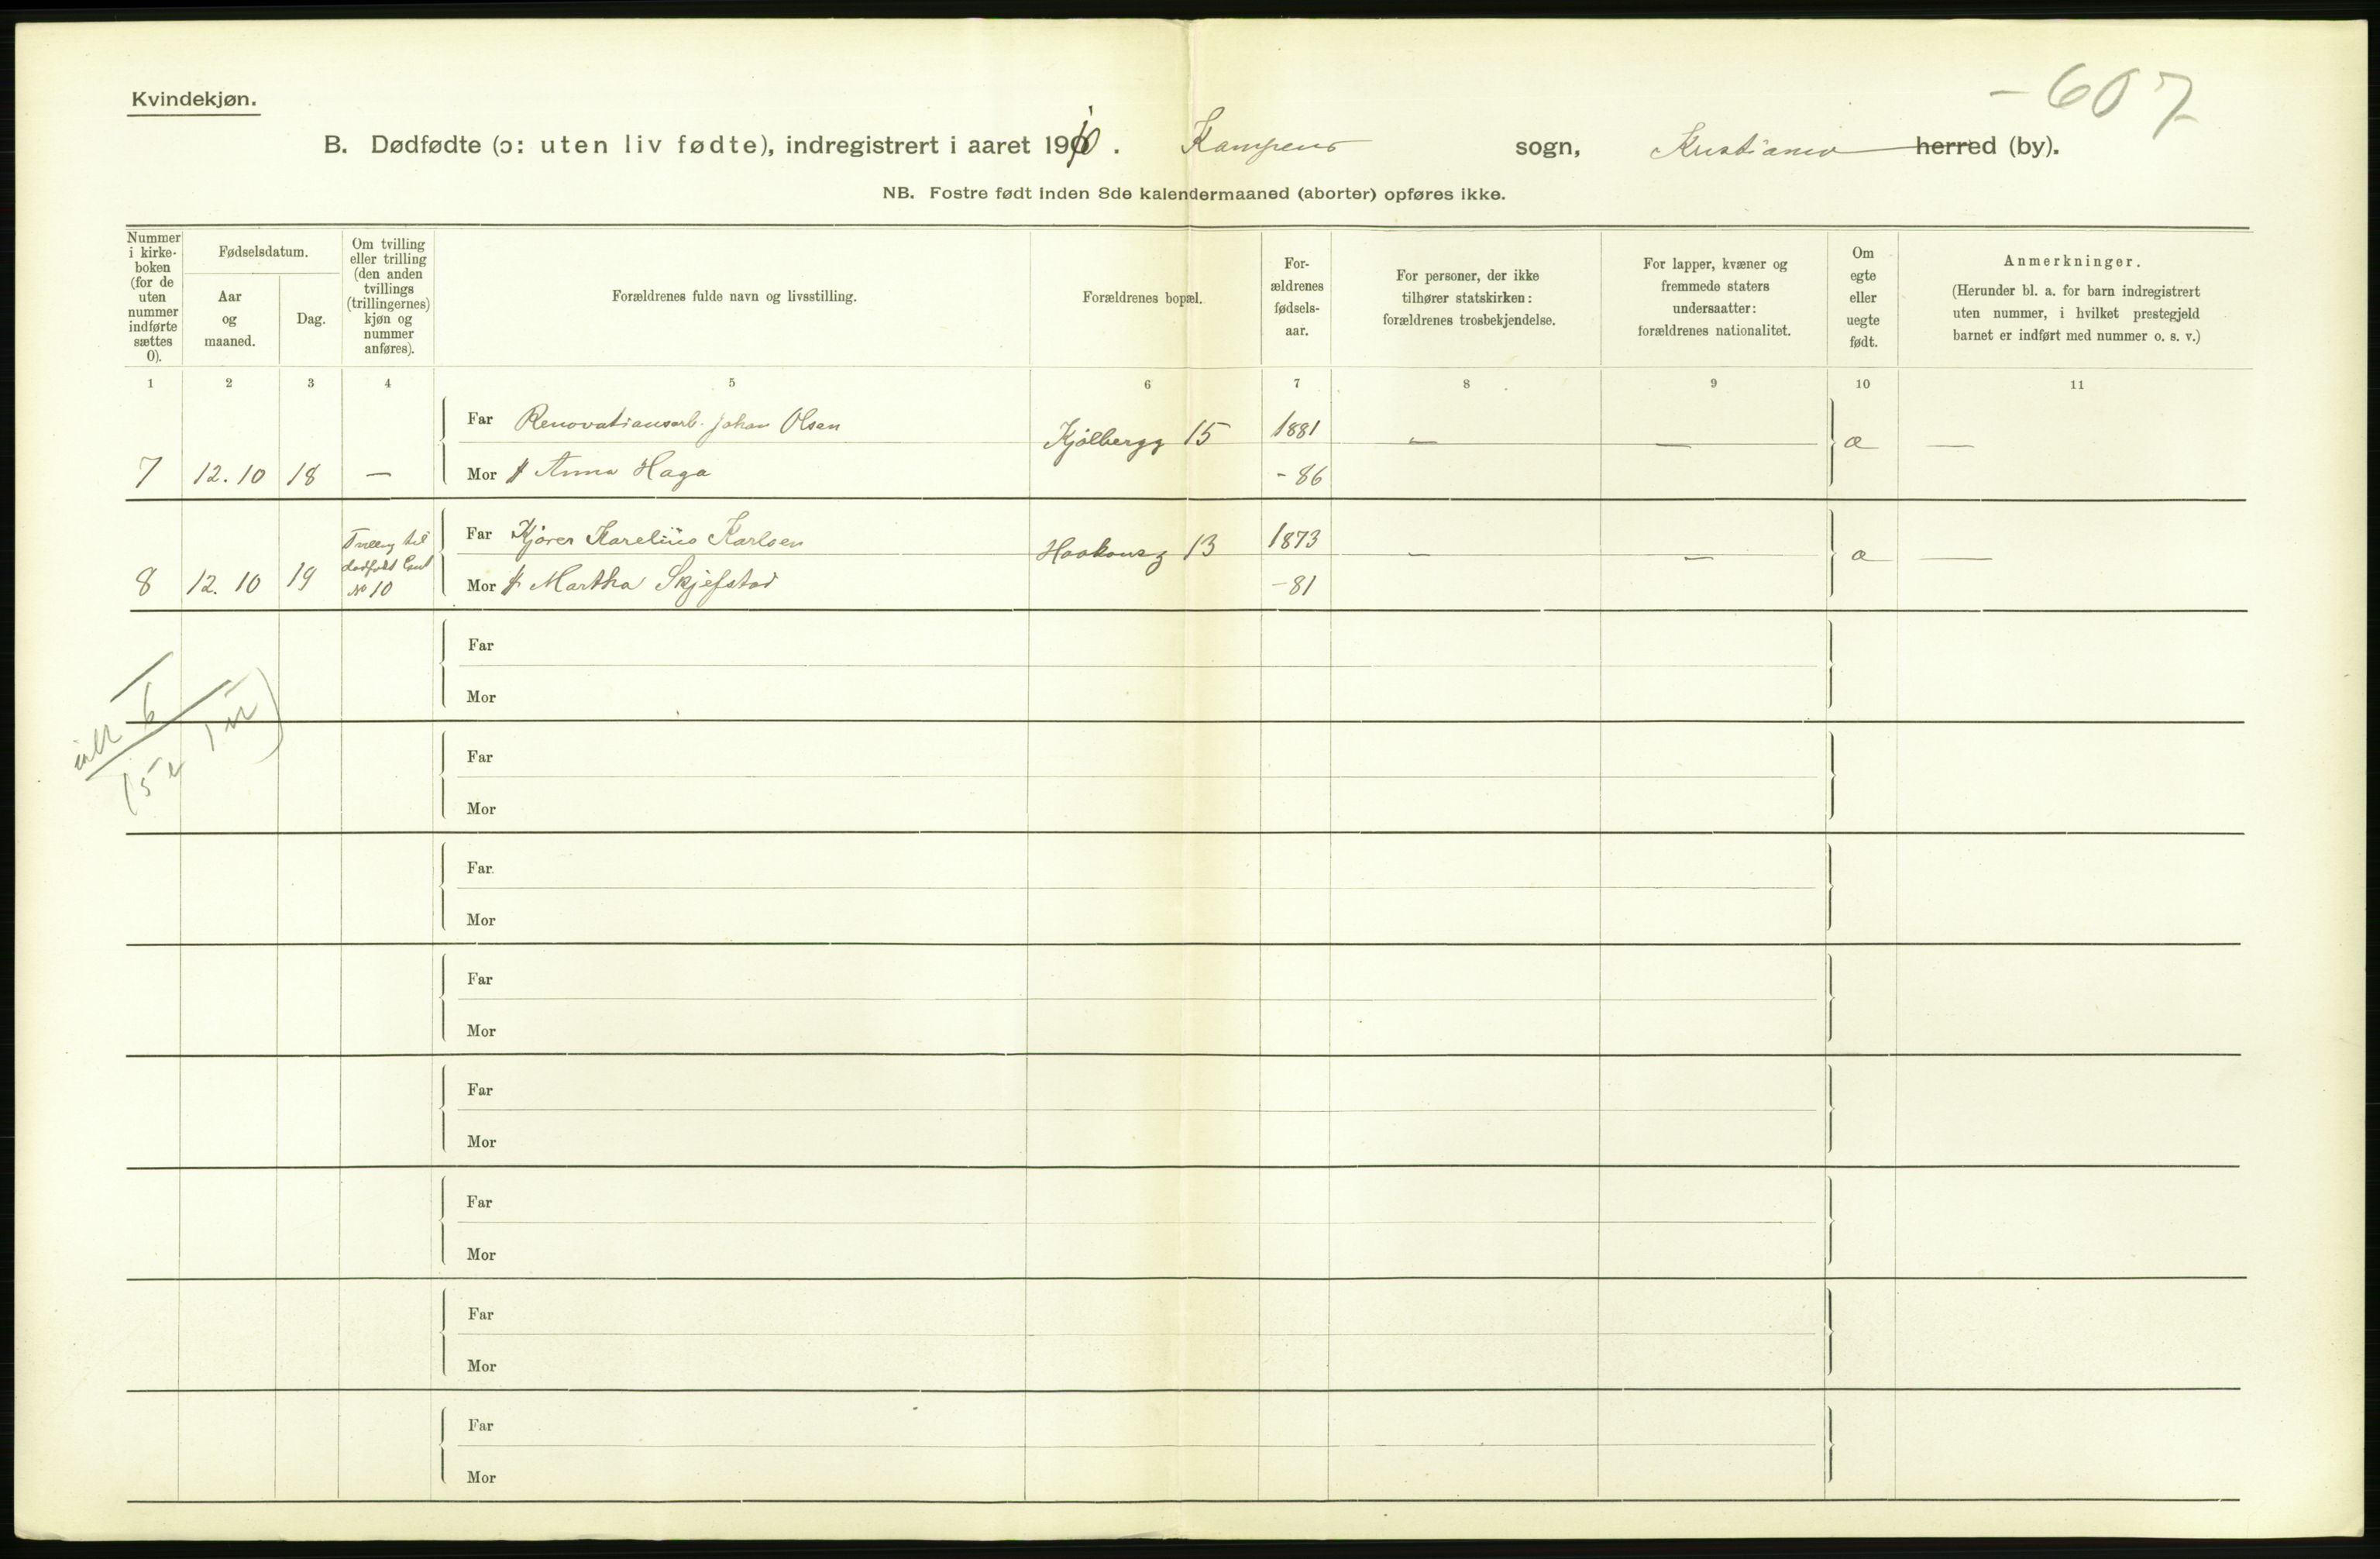 Kvindekjøn.
- 607
B. Dødfødte (ɔ: uten liv fødte), indregistrert i aaret 1910. Kampens sogn, Kristiania herred (by).
NB. Fostre født inden 8de kalendermaaned (aborter) opføres ikke.
Nummer i kirke-
boken
(for de
uten
nummer
indførte
sættes
0).
Fødselsdatum.
Aar
og
maaned.
Dag.
Om tvilling
eller trilling
(den anden
tvillings
(trillingernes)
kjøn og
nummer
anføres).
Forældrenes fulde navn og livsstilling.
Forældrenes bopæl.
For-
ældrenes
fødsels-
aar.
For personer, der ikke
tilhører statskirken:
forældrenes trosbekjendelse.
For lapper, kvæner og
fremmede staters
undersaatter:
forældrenes nationalitet.
Om
egte
eller
uegte
født.
Anmerkninger.
(Herunder bl. a. for barn indregistrert
uten nummer, i hvilket prestegjeld
barnet er indført med nummer o. s. v.)
1 2 3 4 5 6 7 8 9 10 11
Far Renovationsarb. Johan Olsen Kjølbergg 15 1881 — — æ —
7 12.10 18 — Mor Anna Haga - 86
Tvilling til
dødfødt Gut
No 10
Far Kjører Karelius Karlsen Haakonsg 13 1873 — — æ —
8 12.10 19 Mor Martha Skjefstad - 81
Far
Mor
ialt 6
(5 e 1 u)
Far
Mor
Far
Mor
Far
Mor
Far
Mor
Far
Mor
Far
Mor
Far
Mor